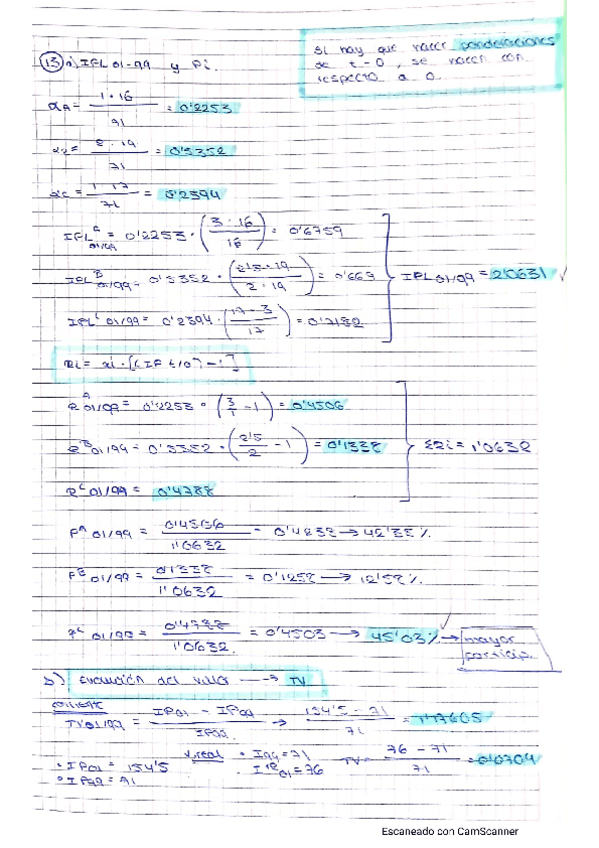 Si hay que hacer ponderaciones
de t-0, se hacen con
respecto a 0.
13 a) IPL 01-99 y Ri.
αA = 1·16 / 71 = 0'2253
α2 = 2·19 / 71 = 0'5352
αC = 1·17 / 71 = 0'2394
IPL^A 01/99 = 0'2253 · (3·16 / 16) = 0'6759
IPL^B 01/99 = 0'5352 · (2'5·19 / 2·19) = 0'669
IPL^C 01/99 = 0'2394 · (17·3 / 17) = 0'7182
IPL 01/99 = 2'0631 ✓
Ri = αi · [(IP t/0) - 1]
R^A 01/99 = 0'2253 · (3/1 - 1) = 0'4506
R^B 01/99 = 0'5352 · (2'5/2 - 1) = 0'1338
R^C 01/99 = 0'4788
ΣRi = 1'0632
P^A 01/99 = 0'4506 / 1'0632 = 0'4238 → 42'38%
P^B 01/99 = 0'1338 / 1'0632 = 0'1258 → 12'58%
P^C 01/99 = 0'4788 / 1'0632 = 0'4503 → 45'03% → mayor
particip.
b) Evolución del valor → TV
corriente
TV 01/99 = IP01 - IP99 / IP99 → 154'5 - 71 / 71 = 1'17605
· IP01 = 154'5
· IP99 = 71
V. real · I99 = 71
· I^R 01 = 76
TV = 76 - 71 / 71 = 0'0704
Escaneado con CamScanner